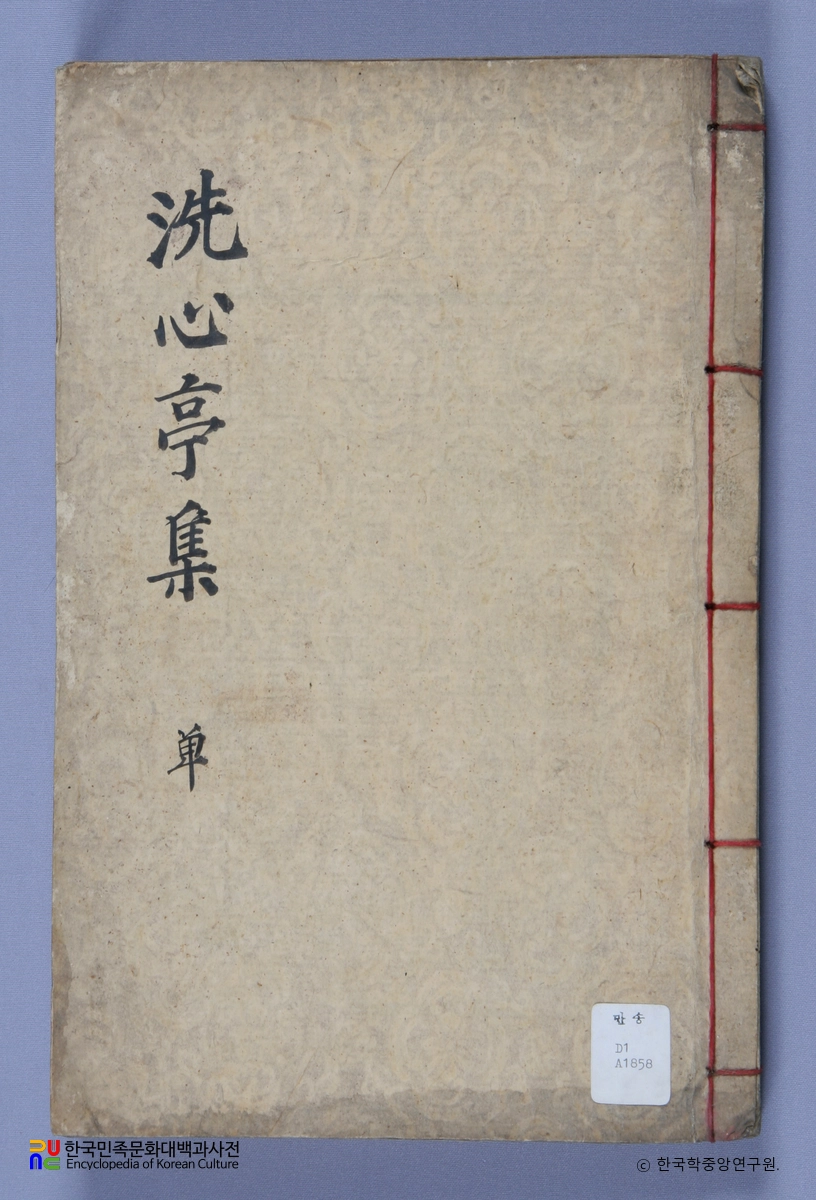 洗心亭集
单
만송
D1
A1858
한국민족문화대백과사전
Encyclopedia of Korean Culture
© 한국학중앙연구원.